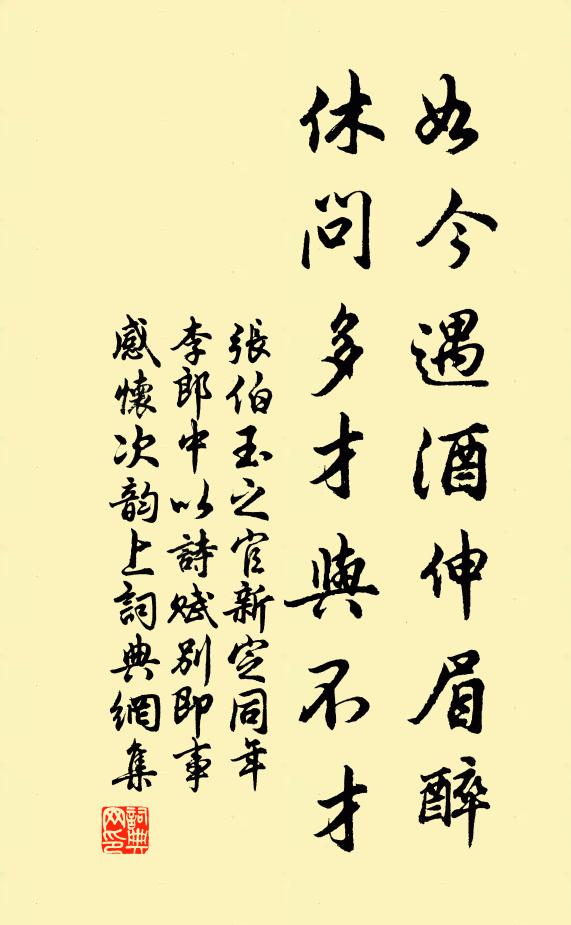 如今遇酒伸眉醉
休問多才與不才
張伯玉之官新定同年
李郎中以詩賦別即事
感懷次韵上詞典網集
詞典
网印